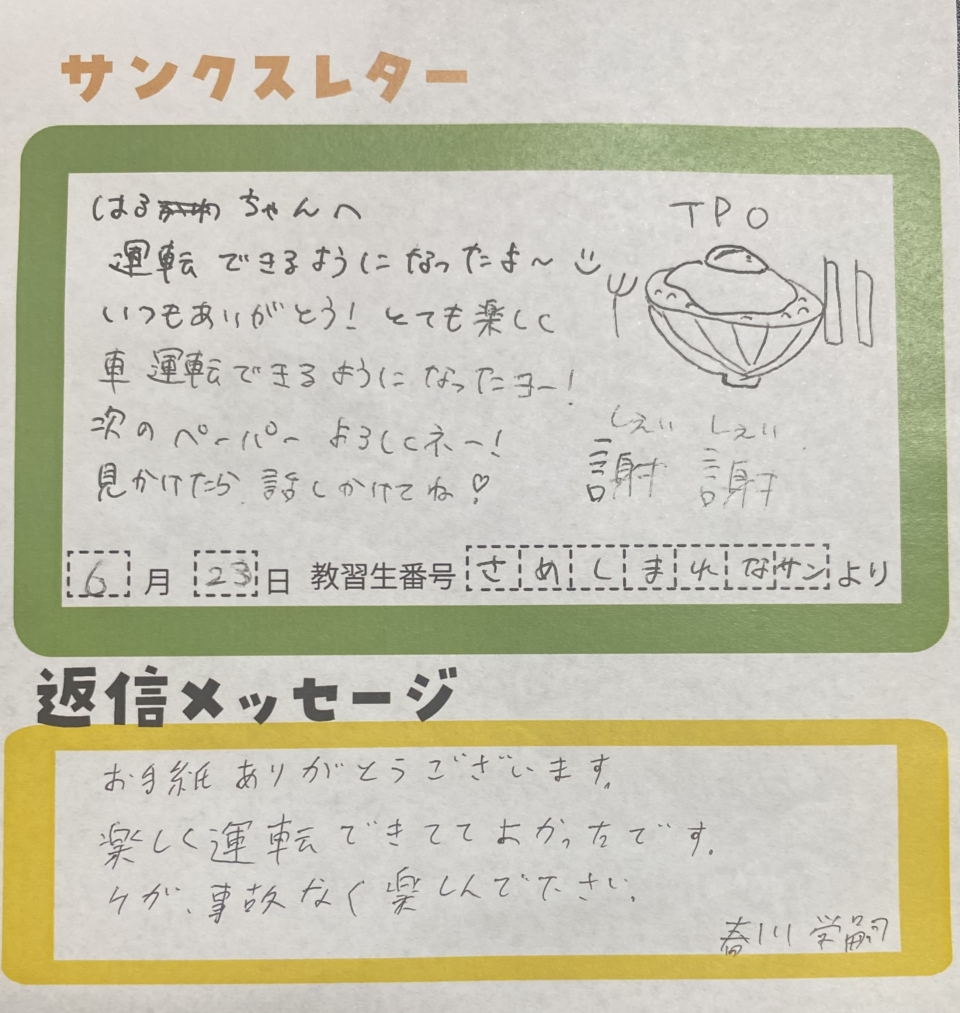 サンクスレター
はる ちゃんへ
運転 できるように なったよ〜
いつもありがとう! とても楽しく
車 運転できるように なったヨー!
次の ペーパー よろしくネー!
見かけたら 話しかけてね♡
TPO
しぇい しぇい
謝 謝
6 月 23 日 教習生番号 さめしまれなサン より
返信メッセージ
お手紙 ありがとうございます。
楽しく運転できててよかったです。
ケガ、事故なく楽しんで下さい。
春川 学嗣